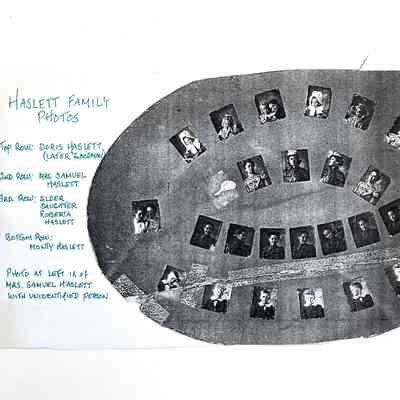 HASLETT FAMILY
PHOTOS
TOP ROW: DORIS HASLETT
(LATER GOODMAN)
2ND ROW: MRS. SAMUEL
HASLETT
3RD ROW: ELDER
DAUGHTER
ROBERTA
HASLETT
BOTTOM ROW:
MONTY HASLETT
PHOTO AT LEFT IS OF
MRS. SAMUEL HASLETT
WITH UNIDENTIFIED PERSON